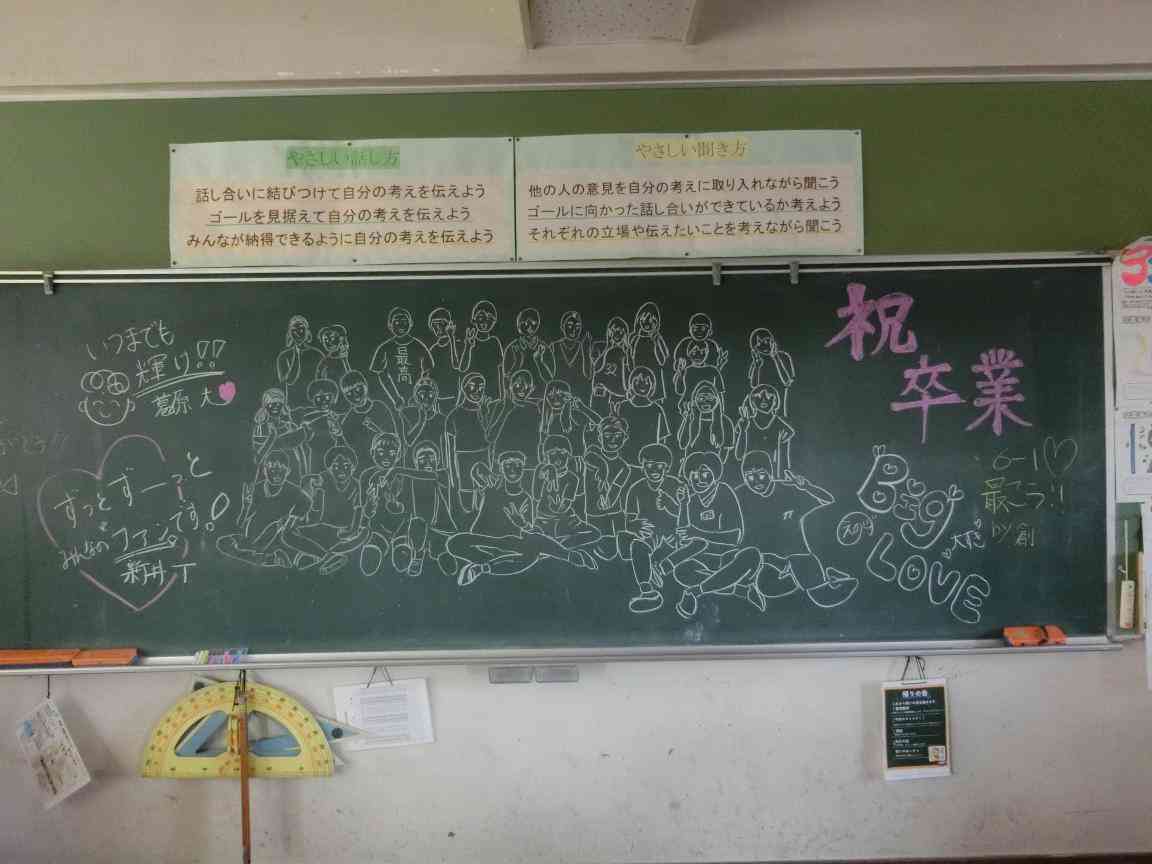 やさしい話し方
話し合いに結びつけて自分の考えを伝えよう
ゴールを見据えて自分の考えを伝えよう
みんなが納得できるように自分の考えを伝えよう
やさしい聞き方
他の人の意見を自分の考えに取り入れながら聞こう
ゴールに向かった話し合いができているか考えよう
それぞれの立場や伝えたいことを考えながら聞こう
いつまでも
輝け!!
葛原 大
ずっとずーっと
みんなの
ファンです!
新井 T
最高
32
祝
卒業
Big
LOVE
大すき
6-1
最こう!!
by 創
帰りの会